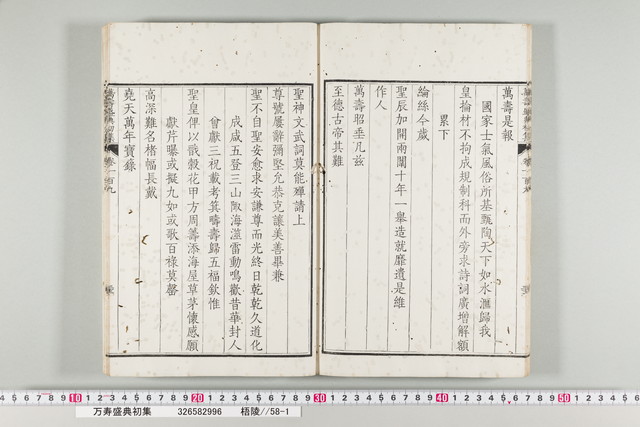 萬壽是報
國家士氣風俗所基甄陶天下如水滙歸我
皇掄材不拘成規制科而外旁求詩詞廣增解額
累下
綸絲今歲
聖辰加開兩闈十年一舉造就靡遺是維
作人
萬壽昭垂凡兹
至德古帝其難
聖神文武詞莫能殫請上
尊號屢辭彌堅允恭克讓美善畢兼
聖不自聖安愈求安謙尊而光終日乾乾久道化
成咸五登三山陬海澨雷動鳴歡昔華封人
曾獻三祝載考箕疇壽歸五福欽惟
聖皇俾以戩穀花甲方周籌添海屋草茅懷感願
獻芹曝或擬九如或歌百祿莫罄
高深難名楮幅長戴
堯天萬年寶錄
10 20 30 40 50
万寿盛典初集 326582996 梧陵//58-1